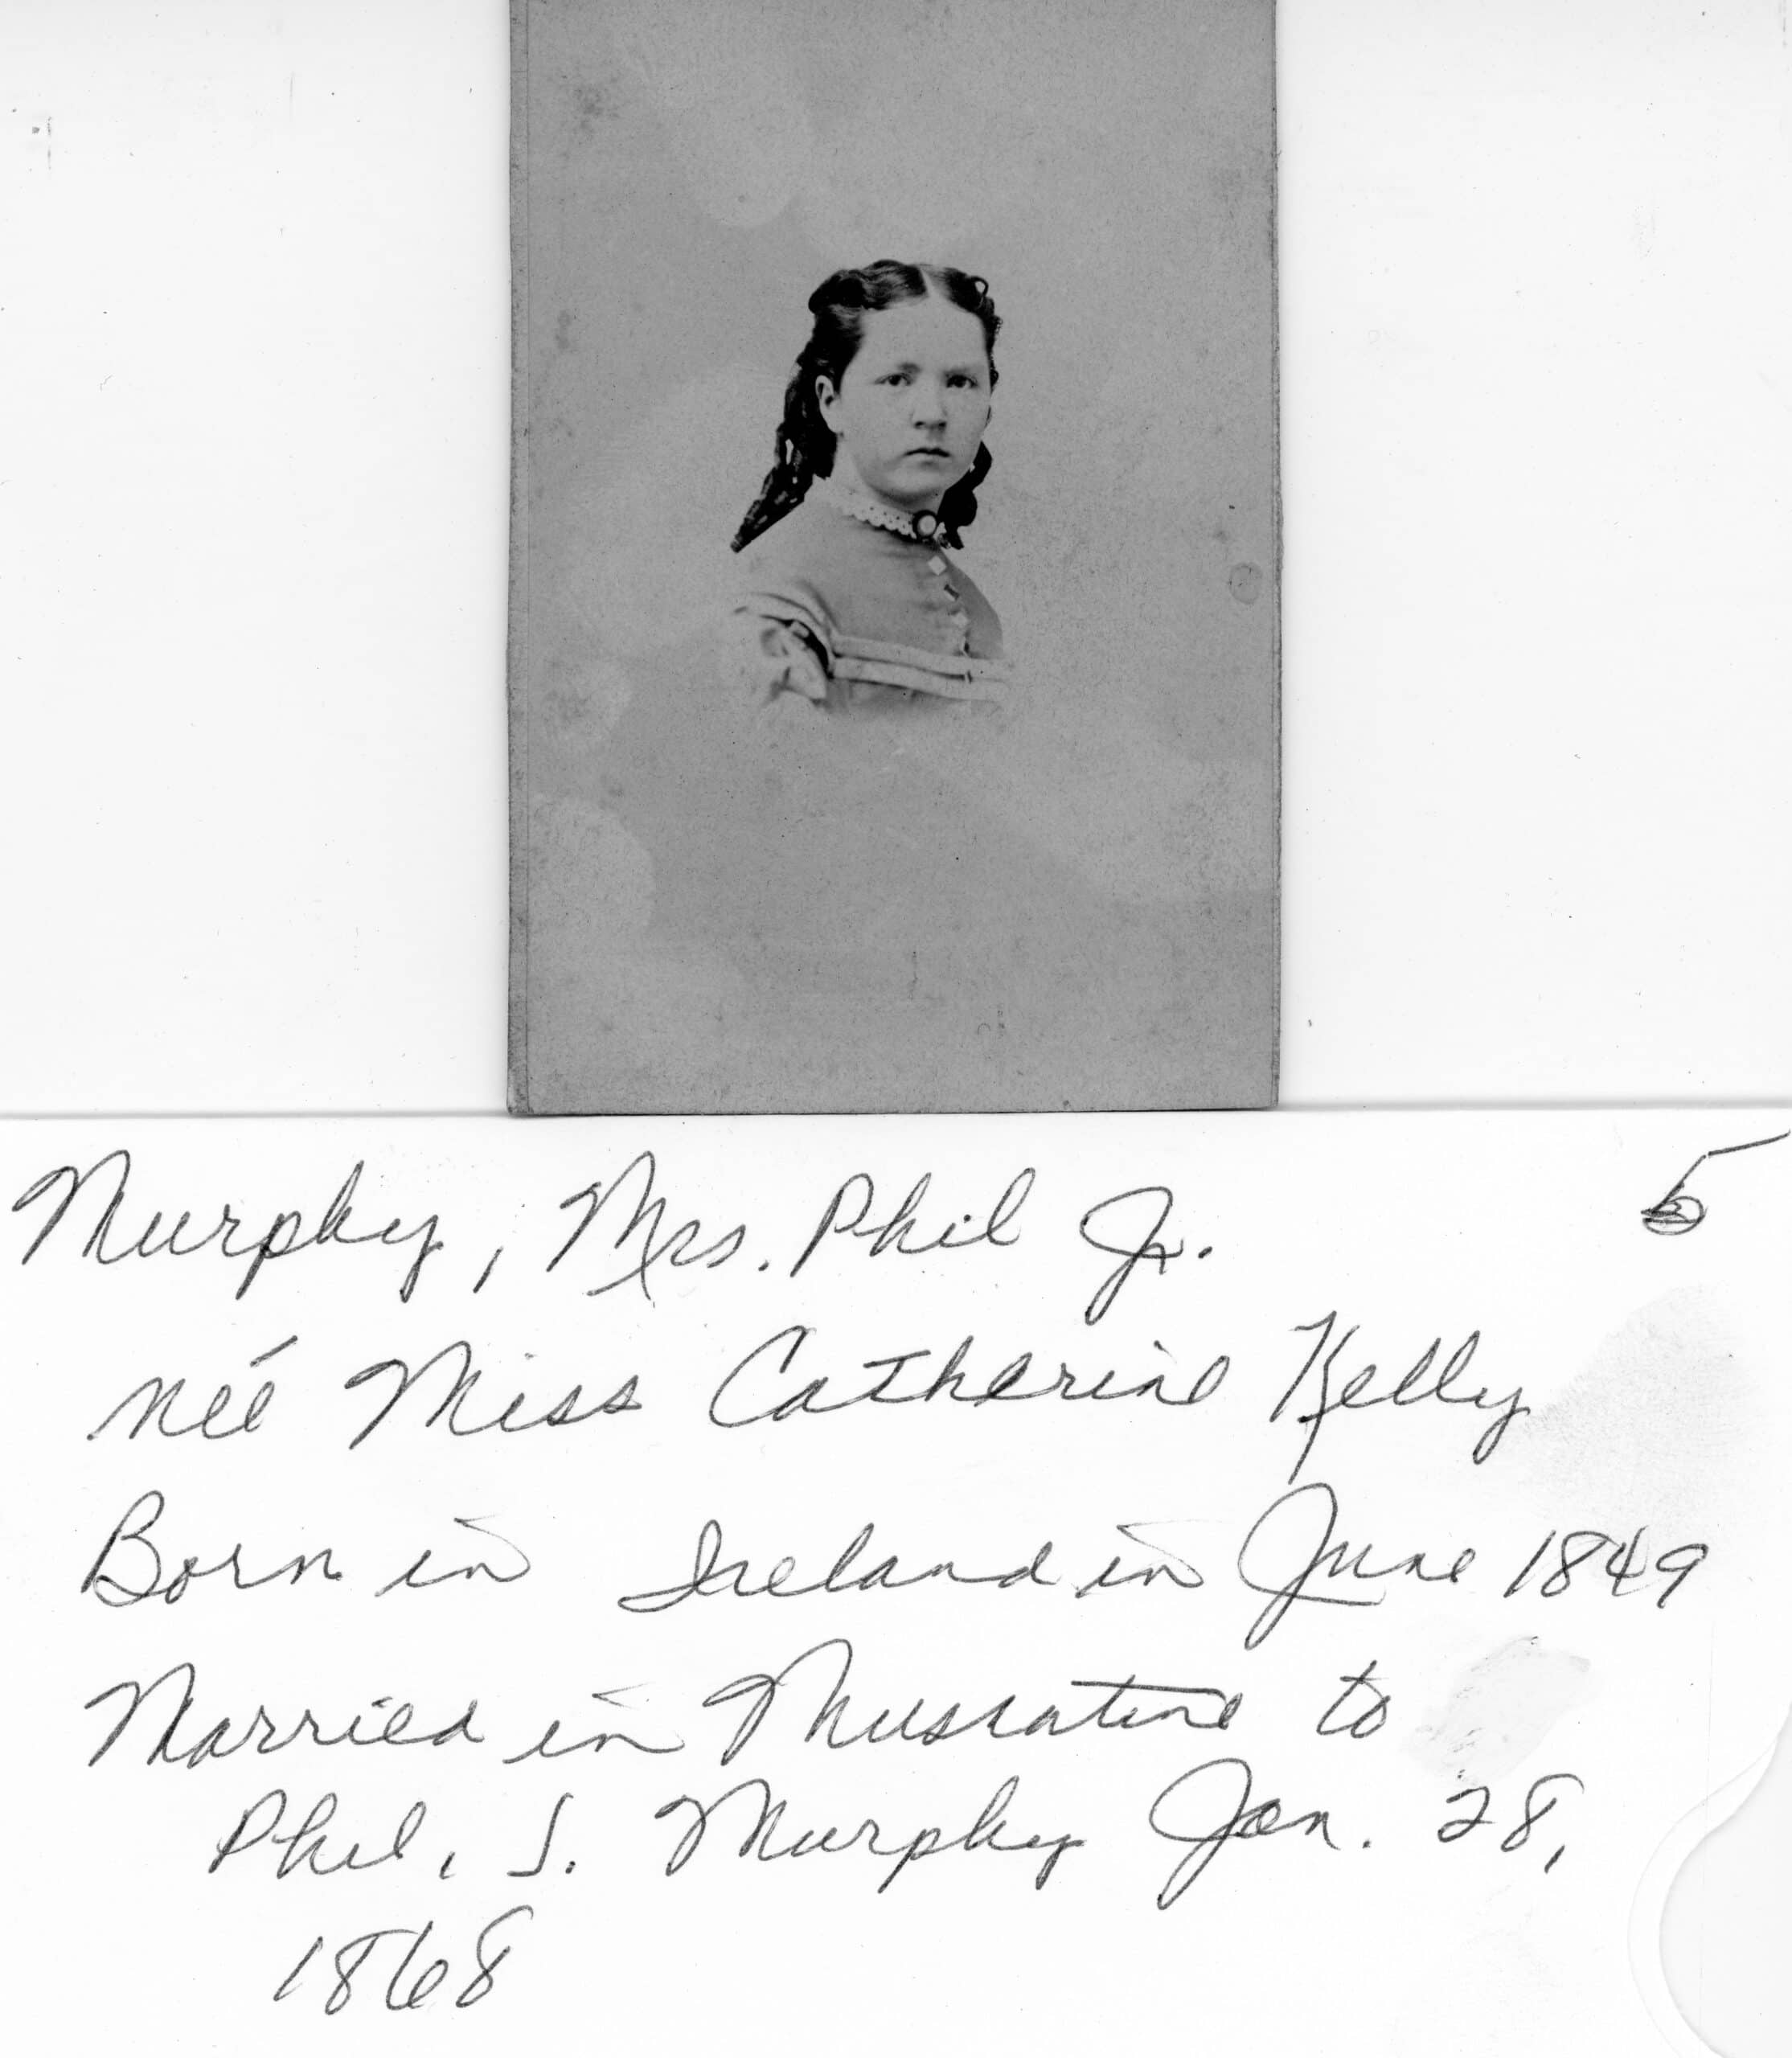 Murphy, Mrs. Phil Jr. 5
neé Miss Catherine Kelly
Born in Ireland in June 1849
Married in Muscatine to
Phil. S. Murphy Jan. 28,
1868